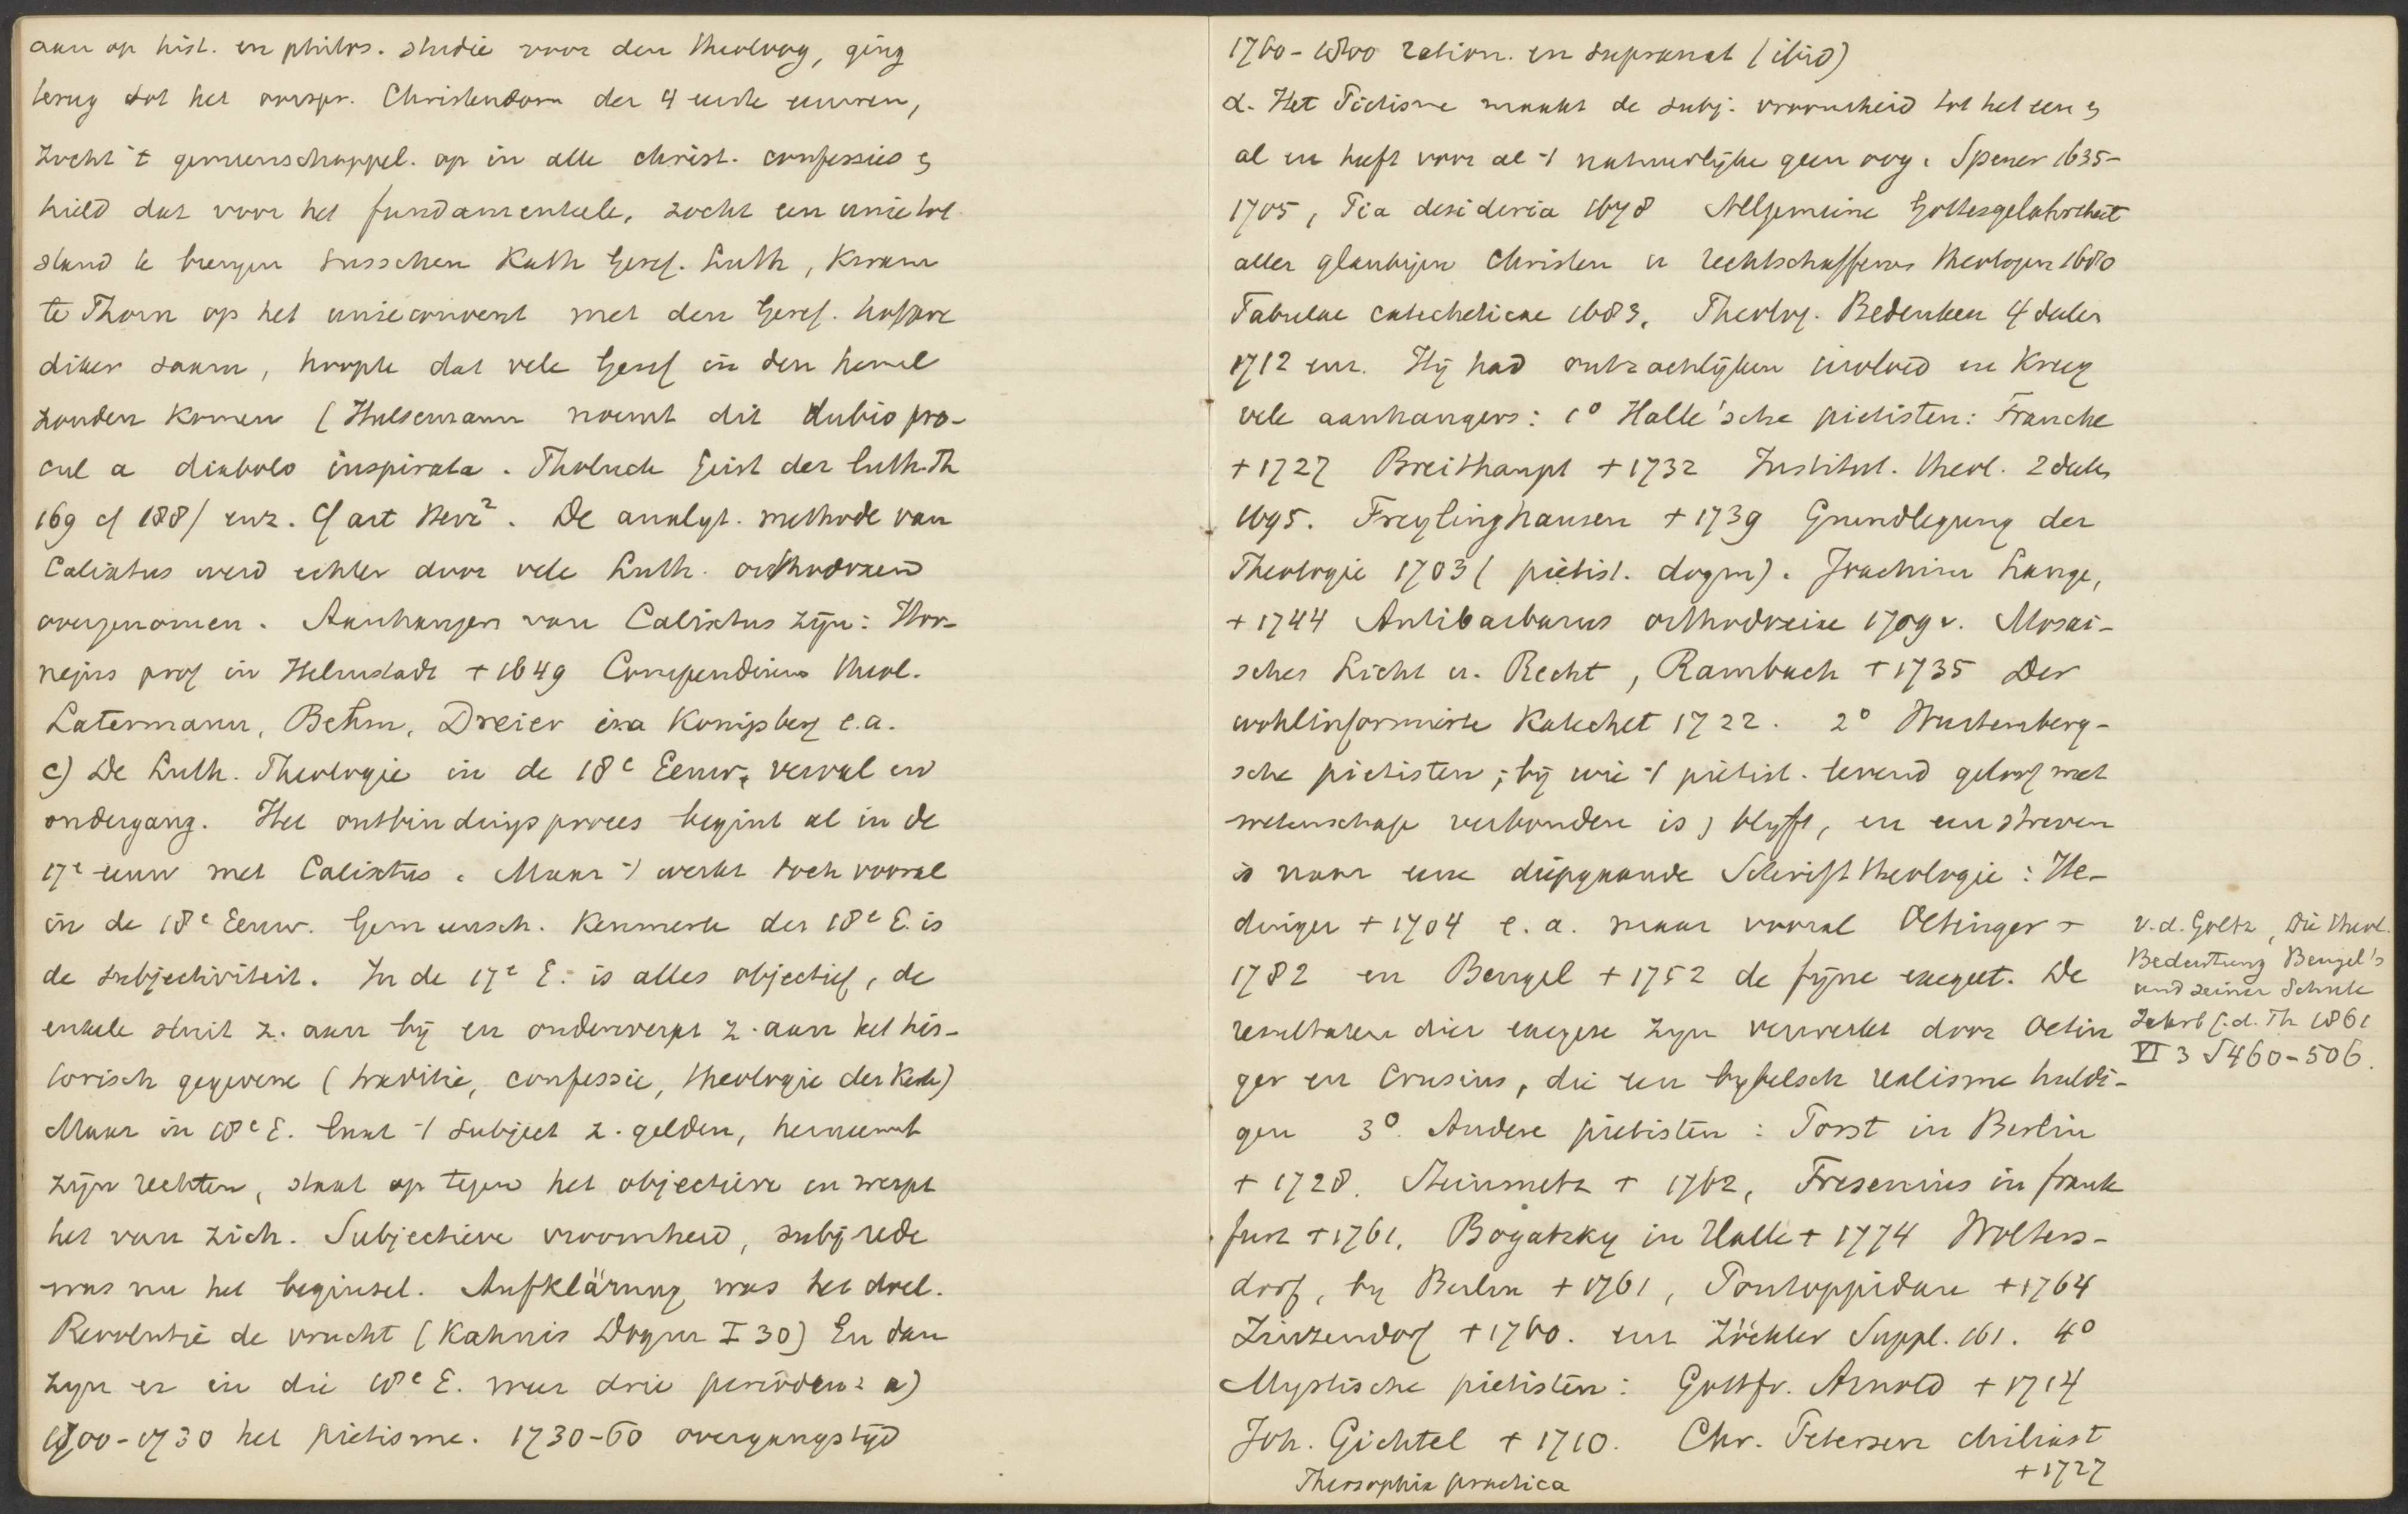 aan op hist. en philos. studie voor den theoloog, ging
terug tot het oorspr. Christendom der 4 eerste eeuwen,
zocht 't gemeenschappel. op in alle christ. confessies &
hield dat voor het fundamenteele, zocht een unie tot
stand te brengen tusschen Kath Geref. Luth, kwam
te Thorn op het unieconvent met den Geref. hofpre
diker saam, hoopte dat vele Geref in den hemel
zouden komen (Hulsemann noemt dit dubio pro-
cul a diabolo inspirata. Tholuck Geist der luth. Th
169 cf 188) enz. Cf art Herz². De analyt. methode van
Calixtus werd echter door vele Luth. orthodoxen
overgenomen. Aanhangers van Calixtus zijn: Hor-
nejus prof in Helmstadt + 1649 Compendium theol.
Latermann, Behm, Dreier in Konigsberg e.a.
c) De Luth. Theologie in de 18e Eeuw, verval en
ondergang. Het ontbindingsproces begint al in de
17e eeuw met Calixtus. Maar 't werkt toch vooral
in de 18e Eeuw. Gemeensch. kenmerk der 18e E. is
de subjectiviteit. In de 17e E. is alles objectief, de
enkele sluit z. aan bij en onderwerpt z. aan het his-
torisch gegevene (traditie, confessie, theologie der Kerk)
Maar in 18e E. laat 't subject z. gelden, herneemt
zijn rechten, staat op tegen het objectieve en werpt
het van zich. Subjectieve vroomheid, subj rede
was nu het beginsel. Aufklärung was het doel.
Revolutie de vrucht (Kahnis Dogm I 30) En dan
zijn er in die 18e E. weer drie perioden: a)
1700-1730 het pietisme. 1730-60 overgangstijd
1760-1800 ration. en supranat (ibid)
α. Het Pietisme maakt de subj. vroomheid tot het een &
al en heeft voor al 't natuurlijke geen oog. Spener 1635-
1705, Pia desideria 1678 Allgemeine Gottesgelahrtheit
aller glaubigen Christen u rechtschaffenen Theologen 1680
Tabulae catecheticae 1683, Theolog. Bedenken 4 deelen
1712 enz. Hij had ontzachlijken invloed en kreeg
vele aanhangers: 1° Halle'sche pietisten: Francke
+ 1727 Breithaupt + 1732 Institut. theol. 2 deelen
1695. Freylinghausen + 1739 Grundlegung der
Theologie 1703 (pietist. dogm). Joachim Lange,
+ 1744 Antibarbarus orthodoxiae 1709 v. Mosai-
sches Licht u. Recht, Rambach + 1735 Der
wohlinformirte Katechet 1722. 2° Wurtemberg-
sche pietisten; bij wie 't pietist. levend geloof met
wetenschap verbonden is & blyft, en een streven
is naar eene diepgaande Schrifttheologie: He-
dinger + 1704 e.a. maar vooral Oetinger +
1782 en Bengel + 1752 de fijne exegeet. De
resultaten dier exegese zijn verwerkt door Oetin
ger en Crusius, die een bybelsch realisme huldi-
gen 3° Andere pietisten: Porst in Berlin
+ 1728. Steinmetz + 1762, Fresenius in frank
furt + 1761. Bogatzky in Halle + 1774 Wolters-
dorf, by Berlin + 1761, Pontoppidan + 1764
Zinzendorf + 1760. enz Zöckler Suppl. 161. 4°
Mystische pietisten: Gottfr. Arnold + 1714
Joh. Gichtel + 1710. Chr. Petersen chiliast
Theosophia practica + 1727
v.d. Goltz, Die theol.
Bedeutung Bengel's
und seiner Schule
Jahrb f.d. Th 1861
VI 3 S 460-506.